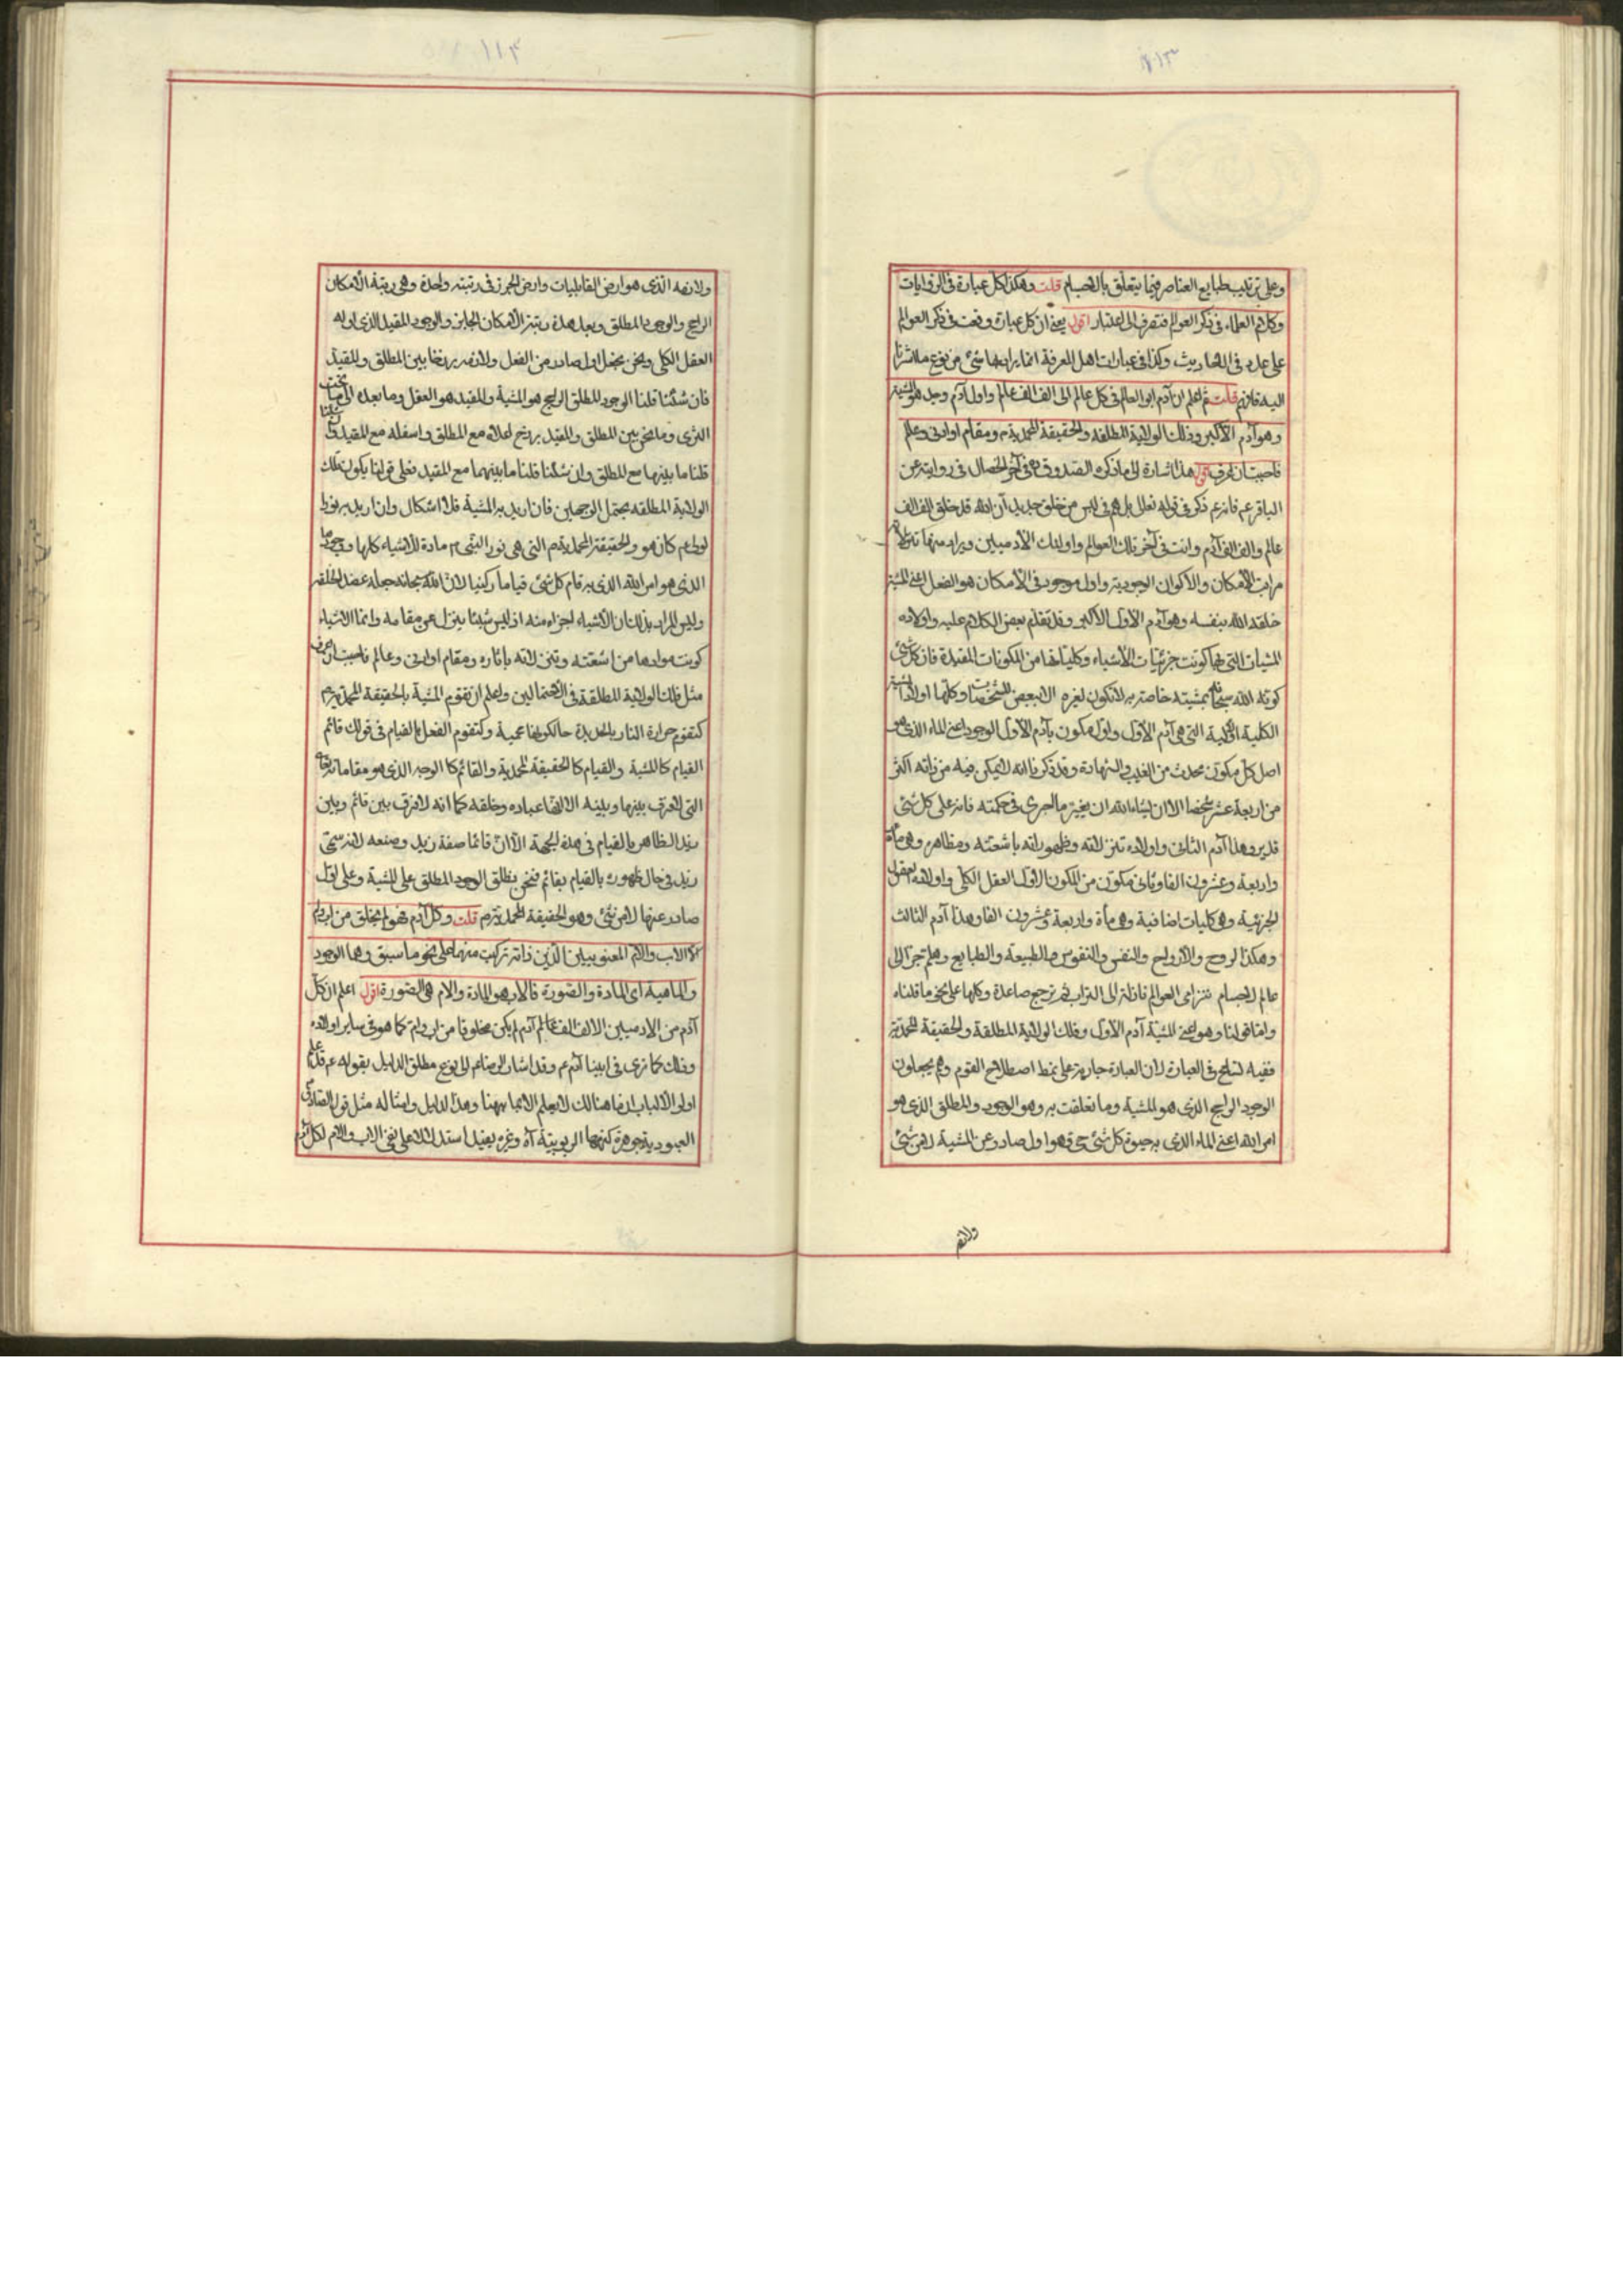 ١١٣
وعلى ترتيب طبايع العناصر فيما يتعلق بالاجسام قلت وهكذا كل عبارة في الروايات
وكلام العلماء في ذكر العوالم فتصرف الى اعتبار اقول يعني ان كل عبارة وقعت في ذكر العوالم
على عدد في الاحاديث وكذا في عبارات اهل المعرفة انما يراد بها شئ من نوع ما اشرنا
اليه فافهم قلت ثم اعلم ان آدم ابو العالم في كل عالم الى الف الف عالم واول آدم وجد هو المشية
وهو آدم الاكبر وذلك الولاية المطلقة والحقيقة المحمدية ص ومقام او ادنى وعالم
فاحببت ان اعرف اقول هذا اشارة الى ما ذكره الصدوق في آخر الخصال في روايته عن
الباقر ع فانه ع ذكر في قوله تعالى بل هم في لبس من خلق جديد ان الله قد خلق الف الف
عالم والف الف آدم وانت في آخر تلك العوالم واولئك الآدميين ويراد منها
مراتب الامكان والاكوان الوجودية واول موجود في الامكان هو الفعل اعني المشية
خلقه الله بنفسه وهو آدم الاول الاكبر وقد تقدم بعض الكلام عليه واولاده
المشيات التي بها كونت جزئيات الاشياء وكلياتها من المكونات المقيدة فان كل شئ
كونه الله سبحانه بمشيته خاصة به لا تكون لغيره الا ببعض المشخصات وكلها اولاد المشية
الكلية التي هي آدم الاول واول مكون بآدم الاول الوجود اعني الماء الذي هو
اصل كل مكون محدث من الغيب والشهادة وقد ذكرنا انه لا يمكن فيه من ذاته اكثر
من اربعة عشر شخصا الا ان يشاء الله ان يغير ما اجرى في حكمته فانه على كل شئ
قدير وهذا آدم الثاني واولاده تنزلاته وظهوراته باشعته ومظاهره وهي مأة
واربعة وعشرون الفا وثاني مكون من المكون الاول العقل الكلي واولاده العقول
الجزئية وهي كليات اضافية وهي مأة واربعة وعشرون الفا وهذا آدم الثالث
وهكذا الروح والارواح والنفس والنفوس والطبيعة والطبايع وهلم جرا الى
عالم الاجسام تترامى العوالم نازلة الى التراب ثم ترجع صاعدة وكلها على نحو ما قلناه
واما قولنا وهو اعني المشية آدم الاول وذلك الولاية المطلقة والحقيقة المحمدية
ففيه تسامح في العبارة لان العبارة جارية على نمط اصطلاح القوم وهم يجعلون
الوجود الراجح الذي هو المشية وما تعلقت به وهو الوجود والمطلق الذي هو
امر الله اعني الماء الذي به حيوة كل شئ حي وهو اول صادر عن المشية لا من شئ
ولانه
١١۴
ولانه الذي هو ارض القابليات وارض الجرز في رتبته واحدة وهي رتبة الامكان
الراجح والوجود المطلق وبعد هذه رتبة الامكان الجايز والوجود المقيد الذي اوله
العقل الكلي ونحن نجعل اول صادر من الفعل ولانه برزخا بين المطلق والمقيد
فان شئنا قلنا الوجود المطلق الراجح هو المشية والمقيد هو العقل وما بعده الى ما تحت
الثرى وما نحن بين المطلق والمقيد برزخ اعلاه مع المطلق واسفله مع المقيد وان شئنا
قلنا ما بينها مع المطلق وان شئنا قلنا ما بينهما مع المقيد فعلى قولنا يكون تلك
الولاية المطلقة يحتمل الوجهين فان اريد به المشية فلا اشكال وان اريد به
كان هو والحقيقة المحمدية ص التي هي نور النبي ص مادة للاشياء كلها
الذي هو امر الله الذي به قام كل شئ قياما ركنيا لان الله سبحانه جعله عضد الخلقه
وليس المراد بذلك ان الاشياء اجزاء منه اذ ليس شيئا ينزل عن مقامه وانما الاشياء
كونت موادها من اشعته وتنزلاته باثاره ومقام او ادنى وعالم فاحببت ان اعرف
مثل ذلك الولاية المطلقة في الاحتمالين واعلم ان تقوم المشية بالحقيقة المحمدية ص
كتقوم حرارة النار بالحديدة حال كونها محمية وكتقوم الفعل بالقيام في قولك قائم
القيام كالمشية والقيام كالحقيقة المحمدية والقائم كالوجه الذي هو مقاماته
التي لا فرق بينها وبينه الا انها عباده وخلقه كما انه لا فرق بين قائم وبين
زيد الظاهر بالقيام في هذه الجهة الا ان قائما صفة زيد وصنعه لانه سمى
زيد في حال ظهوره بالقيام بقائم فنحن نطلق الوجود المطلق على المشية وعلى اول
صادر عنها لا من شئ وهو الحقيقة المحمدية ص قلت وكل آدم فهو لم يخلق من اب وام
الا الاب والام المعنويين الذين ذاته تركبت منهما على نحو ما سبق وهما الوجود
والماهية اي المادة والصورة فالاب هو المادة والام هي الصورة اقول اعلم ان كل
آدم من الآدميين الالف الف عالم آدم لم يكن مخلوقا من اب وام كما هو في ساير اولاده
وذلك كما ترى في ابينا آدم ع وقد اشار الرضا ع الى نوع مطلق الدليل بقوله ع قد علم
اولو الالباب ان ما هنالك لا يعلم الا بما ههنا وهذا الدليل وامثاله مثل قول الصادق
العبودية جوهرة كنهها الربوبية آه وغيره يفيد استدلالا على نفي الاب والام لكل آدم